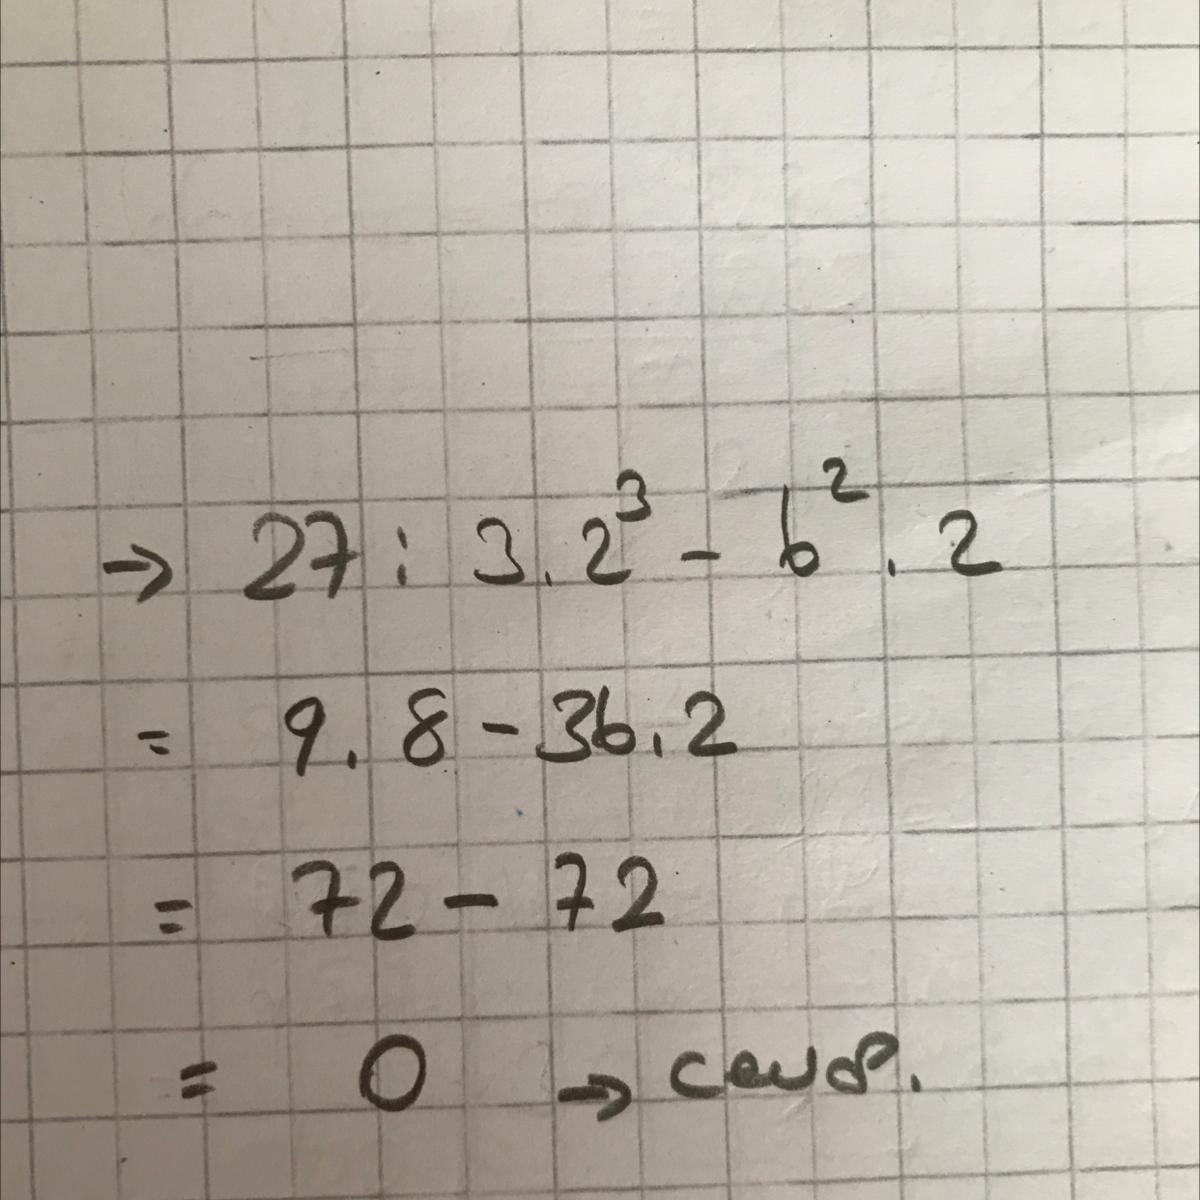 → 27 : 3 . 2³ - 6² . 2
= 9 . 8 - 36 . 2
= 72 - 72
= 0 → cevap.